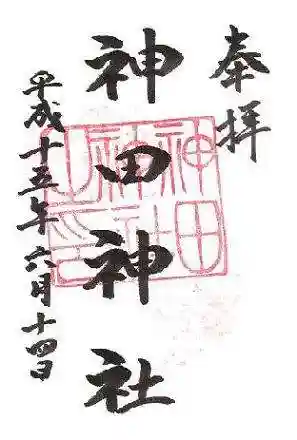 奉拝
神田神社
平成十五年六月十四日
神田神社之印